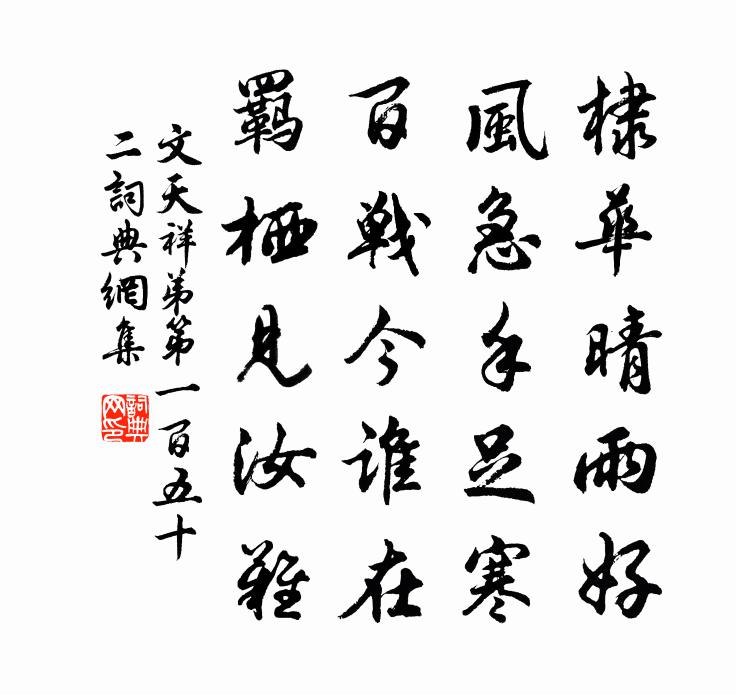 棣華晴雨好
風急手足寒
百戰今誰在
羈栖見汝難
文天祥弟第一百五十
二詞典網集
詞典网印